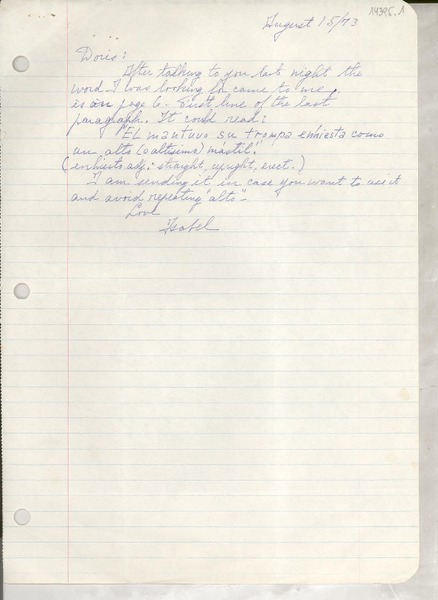 14395.1
August 15/73
Doris:
After talking to you last night the
word I was looking for came to me.
is on page 6. First line of the last
paragraph. It could read:
"El mantuvo su trompa enhiesta como
un alto (o altísimo) mástil".
(enhiesto adj: straight, upright, erect.)
I am sending it in case you want to use it
and avoid repeating "alto".
Love
Isabel